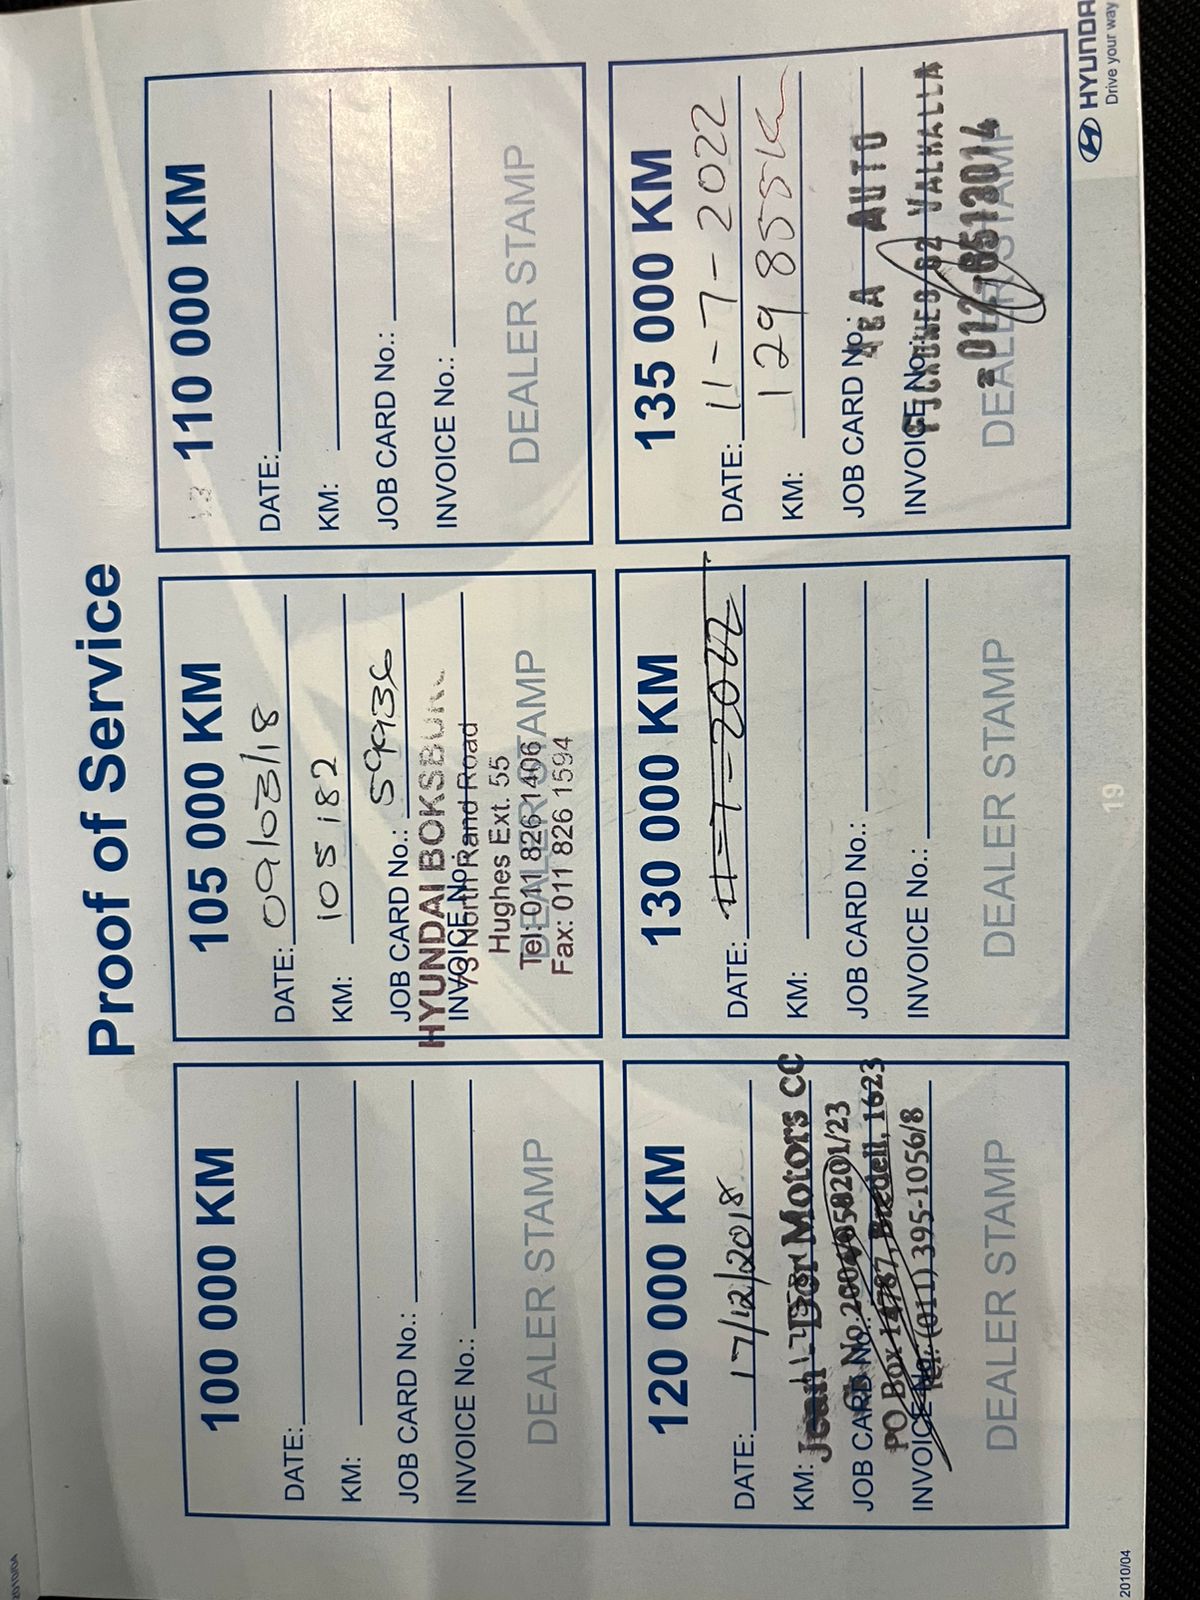 Proof of Service
100 000 KM
DATE:
KM:
JOB CARD No.:
INVOICE No.:
DEALER STAMP
105 000 KM
DATE: 09/03/18
KM: 105 182
JOB CARD No.: 59936
INVOICE No.:
HYUNDAI BOKSBURG
73 North Rand Road
Hughes Ext. 55
Tel: 011 826 1406
Fax: 011 826 1594
DEALER STAMP
13 110 000 KM
DATE:
KM:
JOB CARD No.:
INVOICE No.:
DEALER STAMP
120 000 KM
DATE: 17/12/2018
KM:
Jean Dor Motors CC
No. 2004/058201/23
JOB CARD No.:
PO Box 14787, Bredell, 1623
INVOICE No.:
Tel: (011) 395-1056/8
DEALER STAMP
130 000 KM
DATE: 11-7-2022
KM:
JOB CARD No.:
INVOICE No.:
DEALER STAMP
135 000 KM
DATE: 11-7-2022
KM: 129855k
JOB CARD No.:
AUTO
INVOICE No.:
62 VALHALLA
012-6513014
DEALER STAMP
19
2010/04
HYUNDAI
Drive your way
2010/04